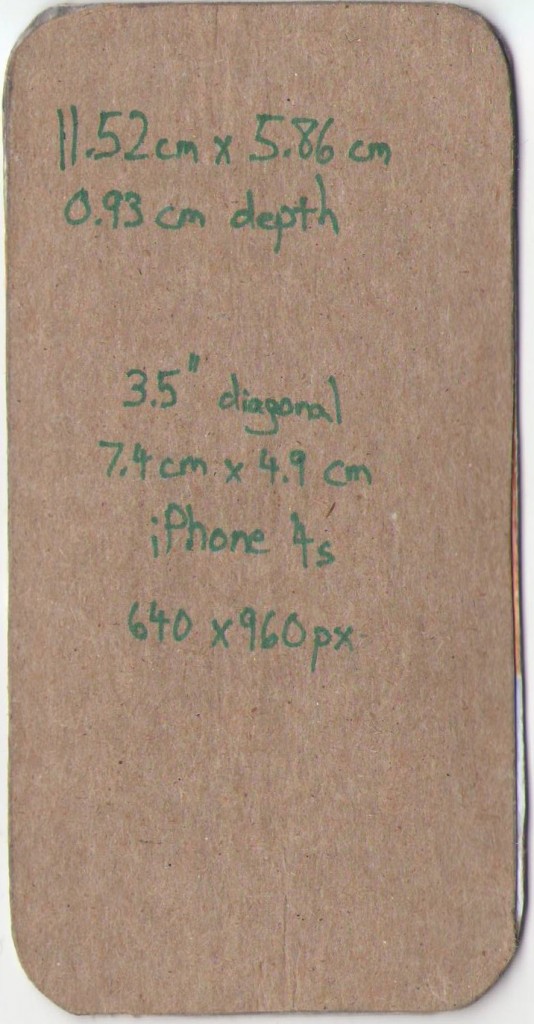 11.52cm x 5.86 cm
0.93 cm depth
3.5" diagonal
7.4cm x 4.9 cm
iPhone 4s
640 x960px